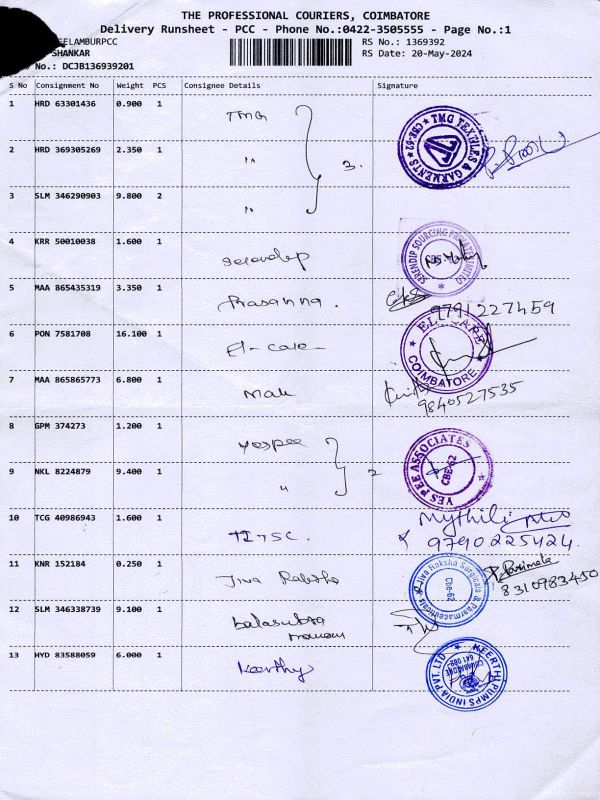 THE PROFESSIONAL COURIERS, COIMBATORE
Delivery Runsheet - PCC - Phone No.:0422-3505555 - Page No.:1
EELAMBURPCC RS No.: 1369392
SHANKAR RS Date: 20-May-2024
No.: DCJB136939201
S No Consignment No Weight PCS Consignee Details Signature
1 HRD 63301436 0.900 1 TMG
TMG TEXTILES & GARMENTS CBE-62
2 HRD 369305269 2.350 1 " 3.
3 SLM 346290903 9.800 2 "
4 KRR 50010038 1.600 1 Serendip
SERENDIP SOURCING PRIVATE LIMITED
5 MAA 865435319 3.350 1 Prasanna. 9791227459
6 PON 7581708 16.100 1 El-care
COIMBATORE
7 MAA 865865773 6.800 1 9840527535
8 GPM 374273 1.200 1 Yespee
YES PEE ASSOCIATES CBE-62
9 NKL 8224879 9.400 1 " 2
10 TCG 40986943 1.600 1 Mythili
9790225424.
11 KNR 152184 0.250 1 Jiva Raksha
Jiva Raksha Surgicals & Pharmaceuticals Cbe-62
8310983450
12 SLM 346338739 9.100 1 balasubra
maniam
13 HYD 83588059 6.000 1 Keerthy
KEERTHI PUMPS INDIA PVT. LTD COIMBATORE 641 062